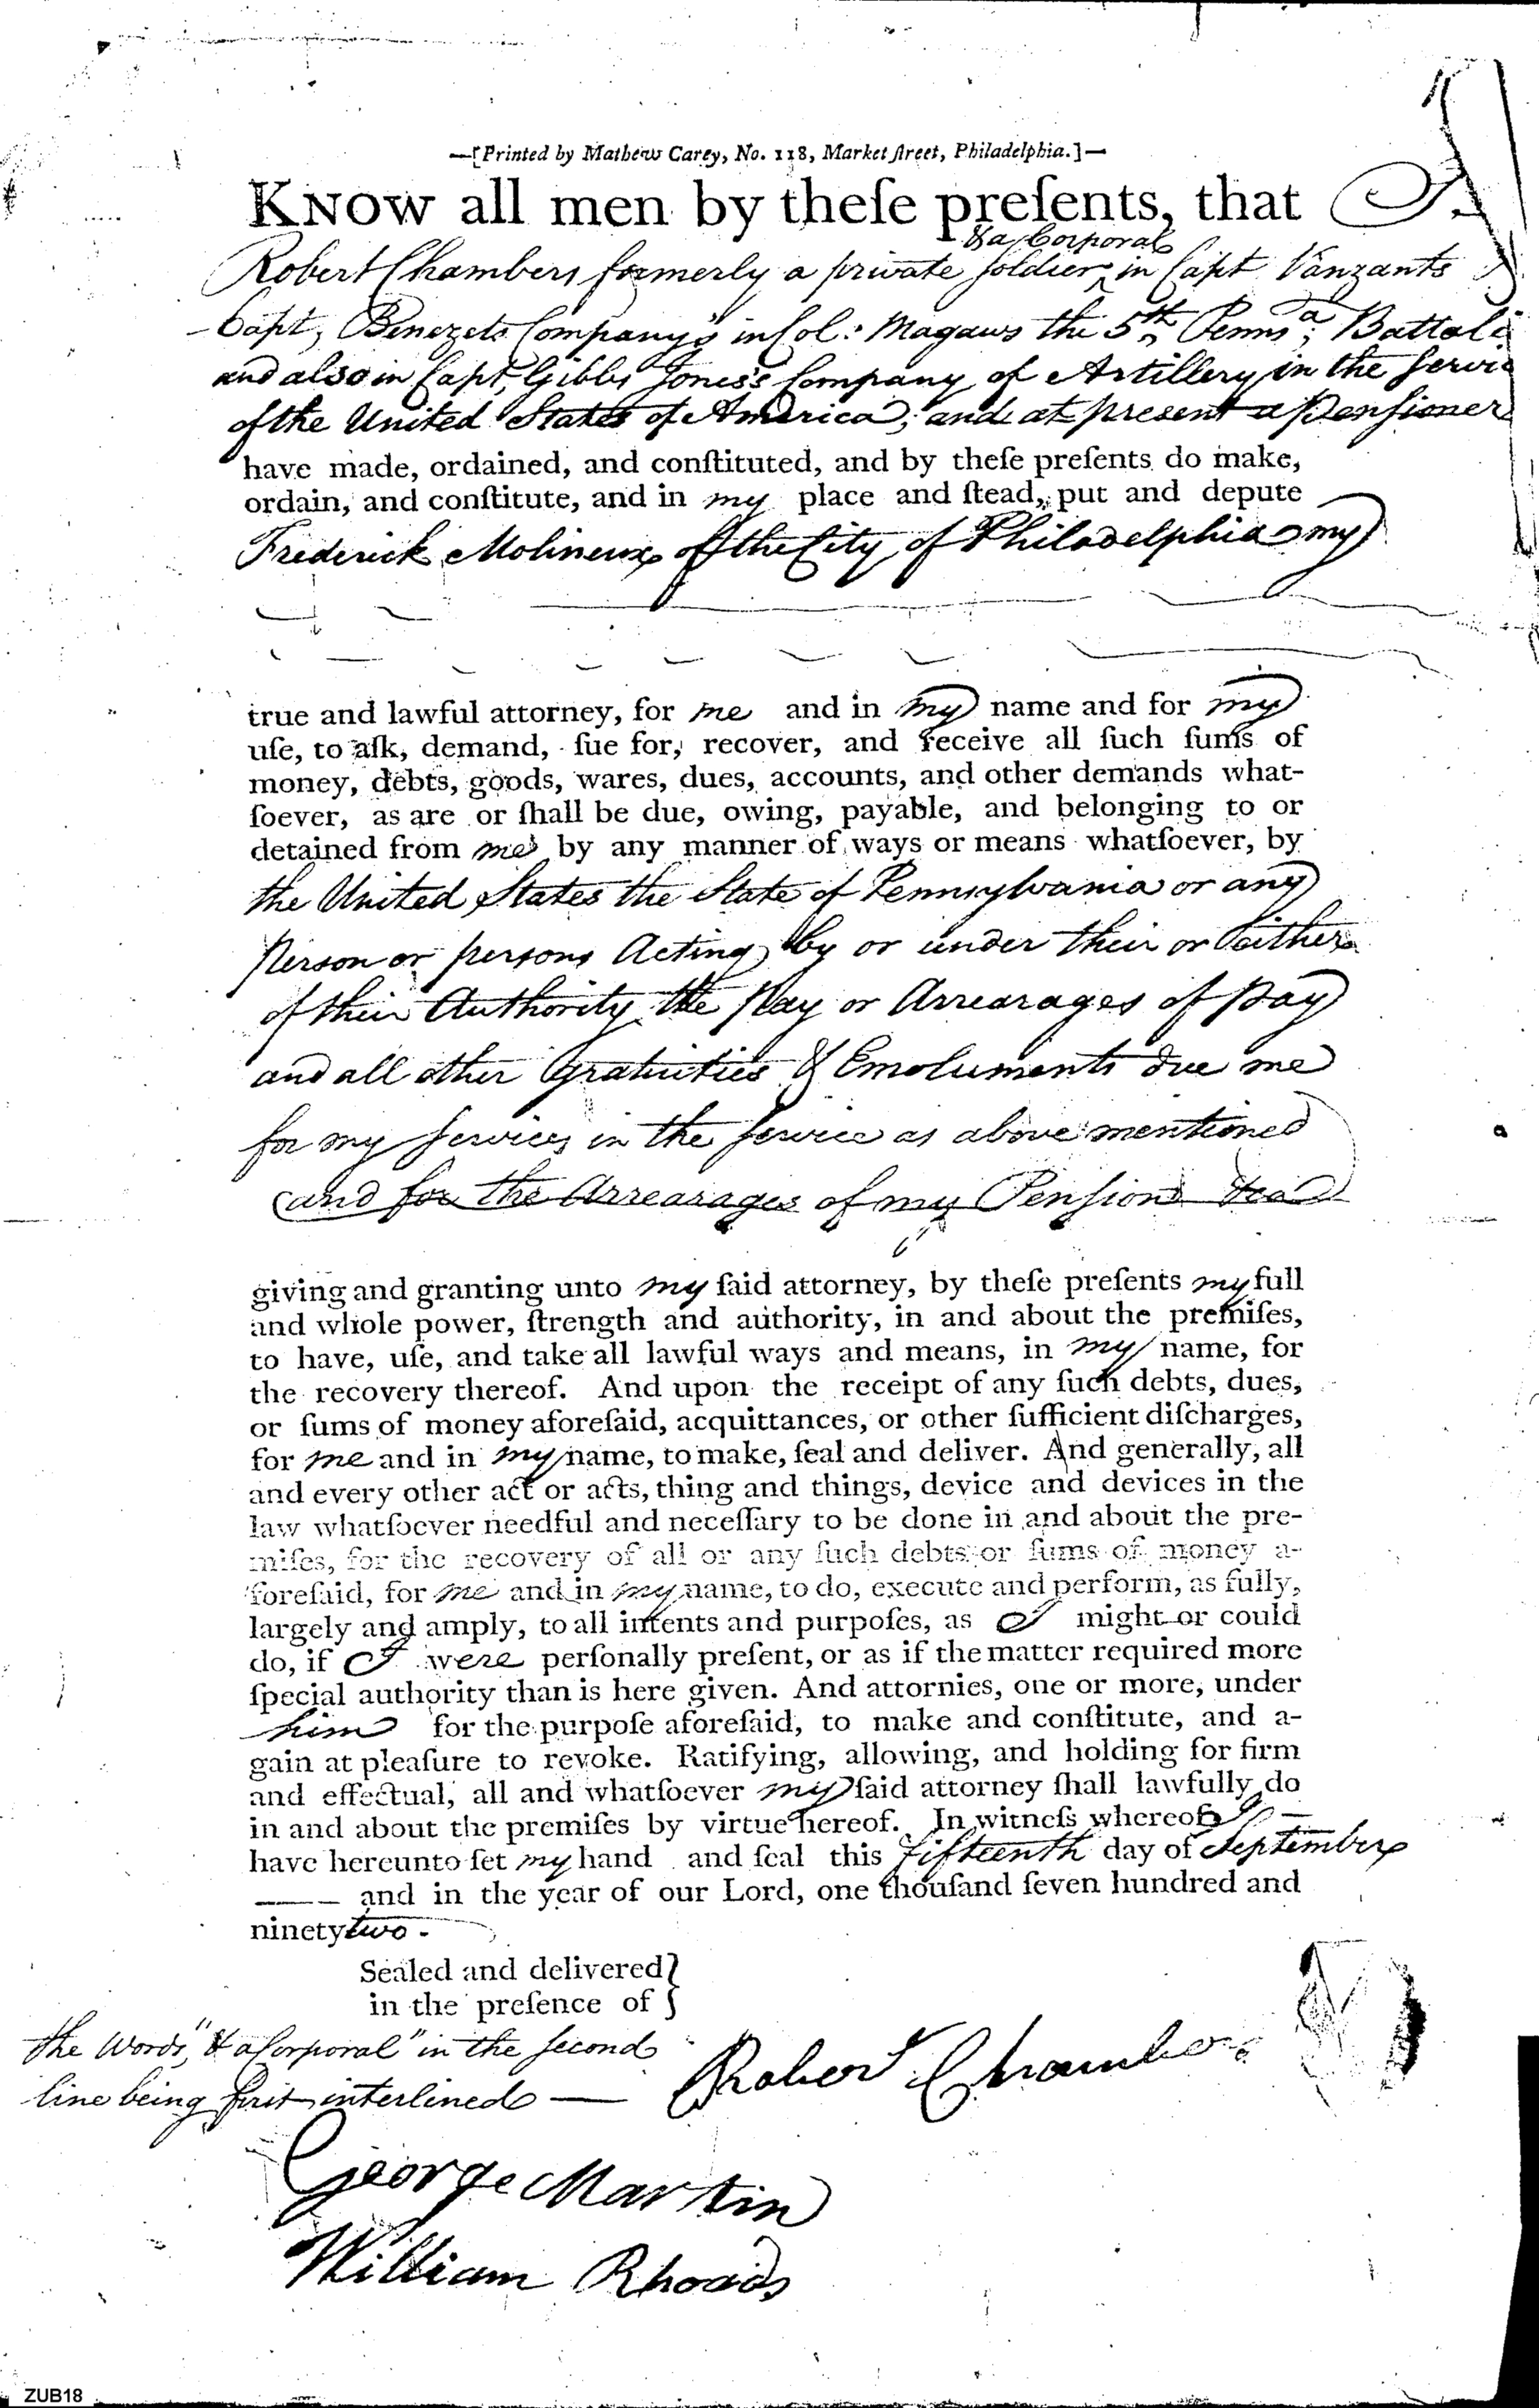 —[Printed by Mathew Carey, No. 118, Market ſtreet, Philadelphia.]—
KNOW all men by theſe preſents, that I
& a Corporal
Robert Chambers formerly a private ſoldier ^ in Capt Vanzants
Capt, Benezets Company's in Col: Magaws the 5th Pennsa; Battali
and also in Capt, Gibbs Jones's Company of Artillery in the ſervic
of the United States of America; and at present a Penſioner
have made, ordained, and conſtituted, and by theſe preſents do make,
ordain, and conſtitute, and in my place and ſtead, put and depute
Frederick Molineux of the City of Philadelphia my
true and lawful attorney, for me and in my name and for my
uſe, to aſk, demand, ſue for, recover, and receive all ſuch ſums of
money, debts, goods, wares, dues, accounts, and other demands what-
ſoever, as are or ſhall be due, owing, payable, and belonging to or
detained from me by any manner of ways or means whatſoever, by
the United States the State of Pennsylvania or any
Person or persons Acting by or under their or either
of their Authority the Pay or Arrearages of Pay
and all other Gratuities & Emoluments due me
for my ſervices in the ſervice as above mentioned
and for the Arrearages of my Penſion
giving and granting unto my ſaid attorney, by theſe preſents my full
and whole power, ſtrength and authority, in and about the premiſes,
to have, uſe, and take all lawful ways and means, in my name, for
the recovery thereof. And upon the receipt of any ſuch debts, dues,
or ſums of money aforeſaid, acquittances, or other ſufficient diſcharges,
for me and in my name, to make, ſeal and deliver. And generally, all
and every other act or acts, thing and things, device and devices in the
law whatſoever needful and neceſſary to be done in and about the pre-
miſes, for the recovery of all or any ſuch debts or ſums of money a-
foreſaid, for me and in my name, to do, execute and perform, as fully,
largely and amply, to all intents and purpoſes, as I might or could
do, if I were perſonally preſent, or as if the matter required more
ſpecial authority than is here given. And attornies, one or more, under
him for the purpoſe aforeſaid, to make and conſtitute, and a-
gain at pleaſure to revoke. Ratifying, allowing, and holding for firm
and effectual, all and whatſoever my ſaid attorney ſhall lawfully do
in and about the premiſes by virtue hereof. In witneſs whereof I —
have hereunto ſet my hand and ſeal this fifteenth day of September
—— and in the year of our Lord, one thouſand ſeven hundred and
ninety two -
Sealed and delivered }
in the preſence of }
the Words, "& a Corporal" in the ſecond
line being first interlined —
Robert Chambers
George Martin
William Rhoads
ZUB18